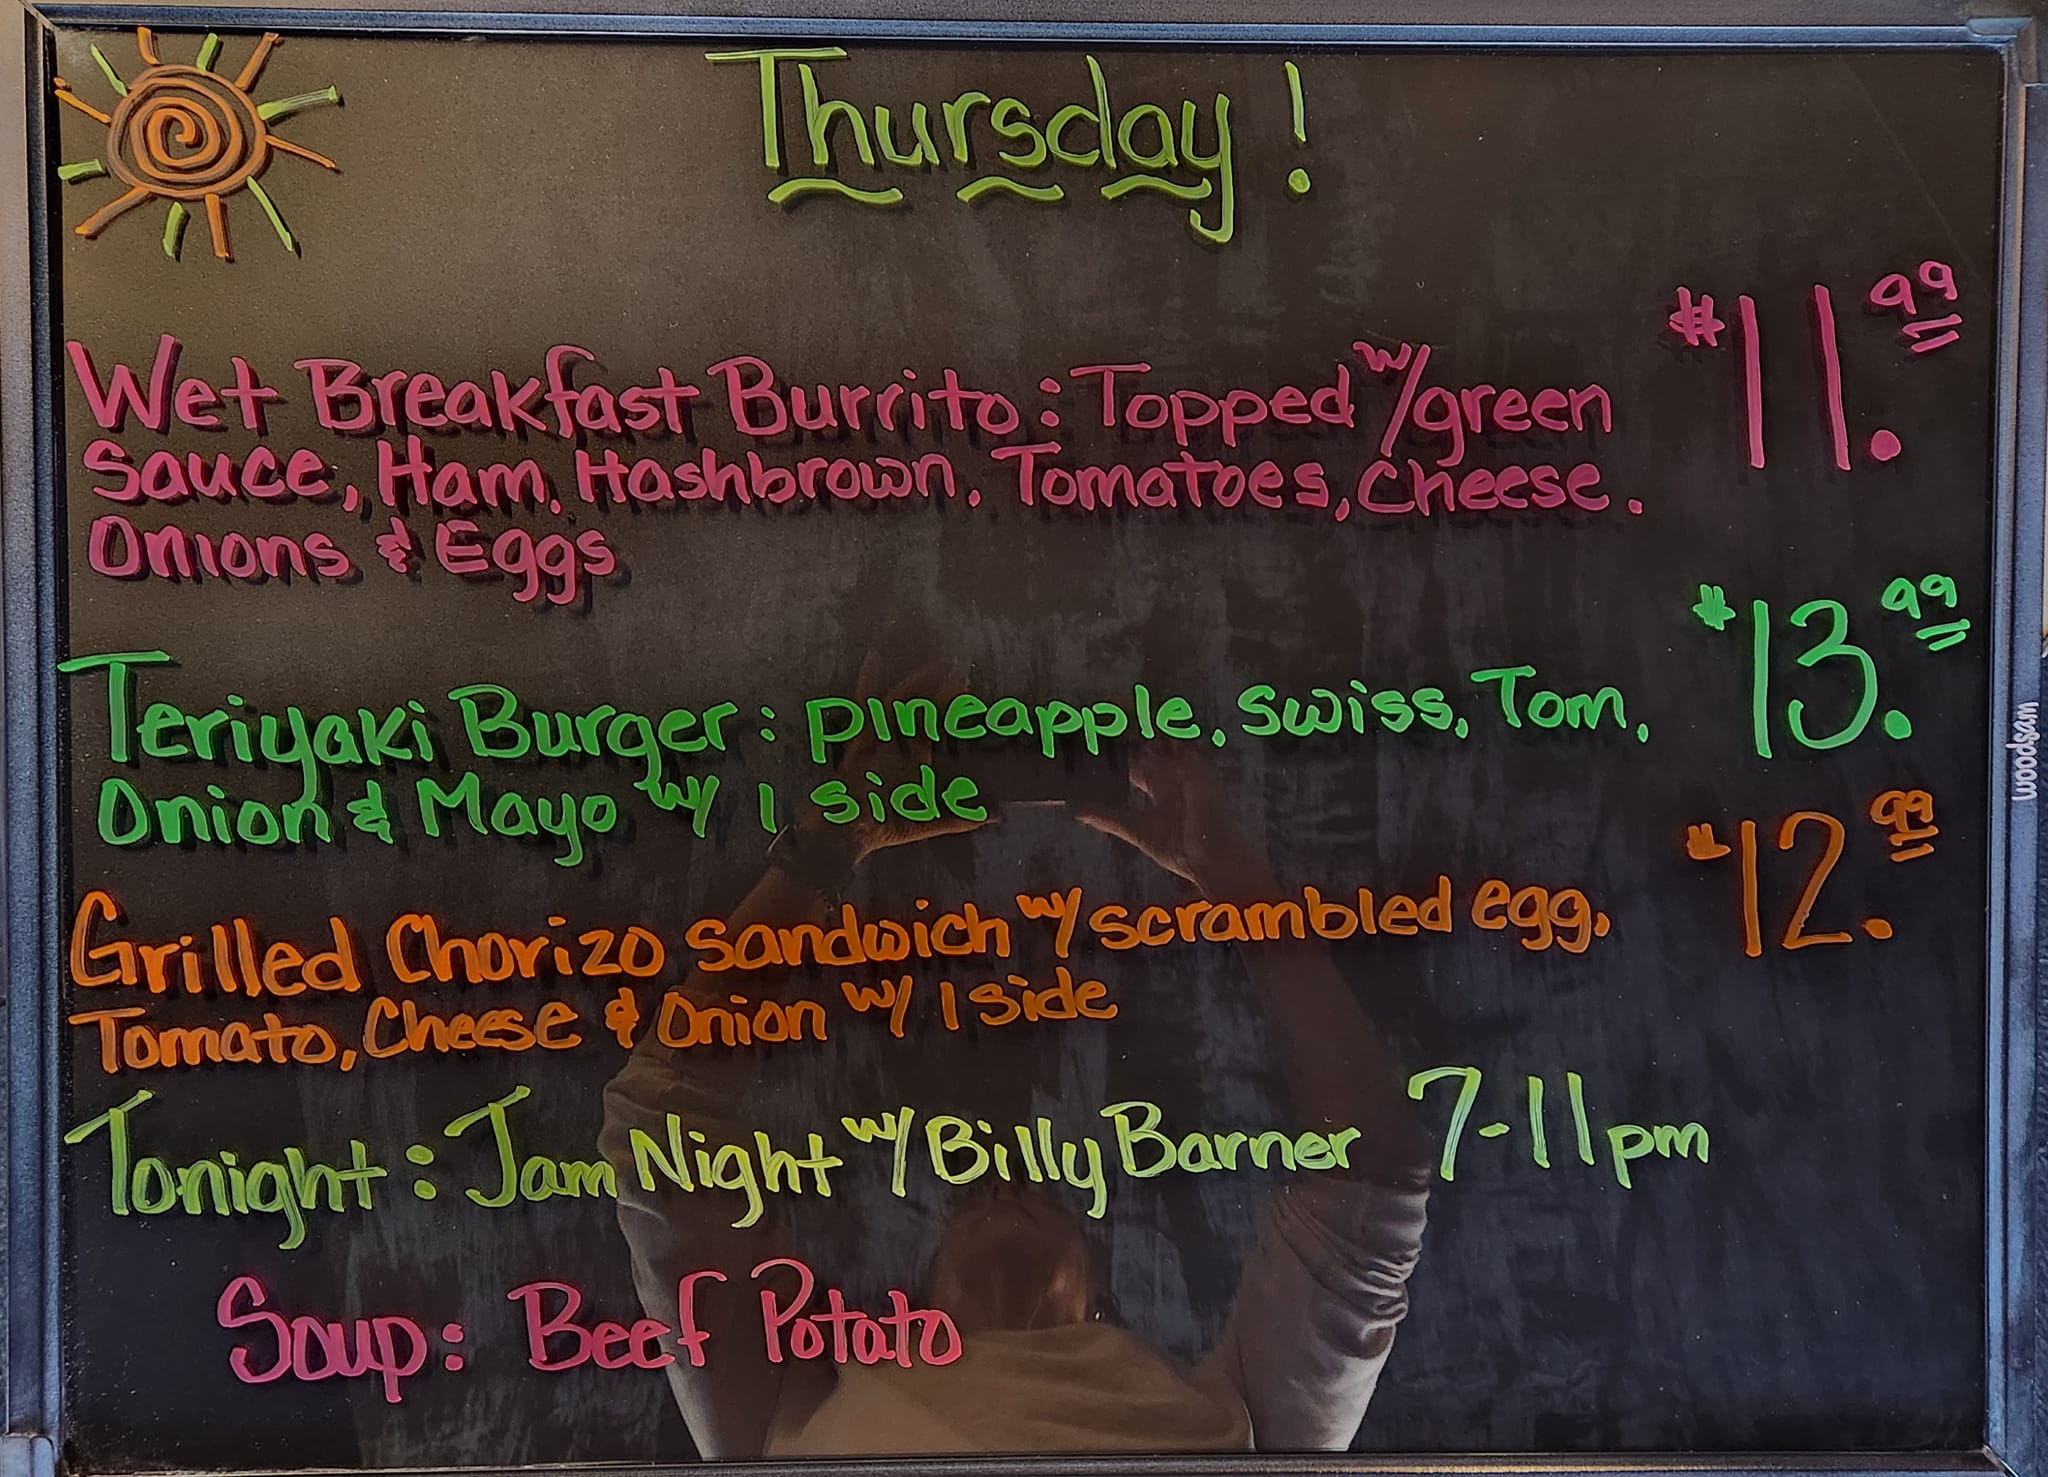 Thursday!
$11.99
Wet Breakfast Burrito: Topped w/green
Sauce, Ham, Hashbrown, Tomatoes, Cheese,
Onions & Eggs
$13.99
Teriyaki Burger: pineapple, swiss, Tom,
Onion & Mayo w/ 1 side
$12.99
Grilled Chorizo Sandwich w/scrambled egg,
Tomato, Cheese & Onion w/ 1 side
Tonight: Jam Night w/Billy Barner 7-11pm
Soup: Beef Potato
woodsam